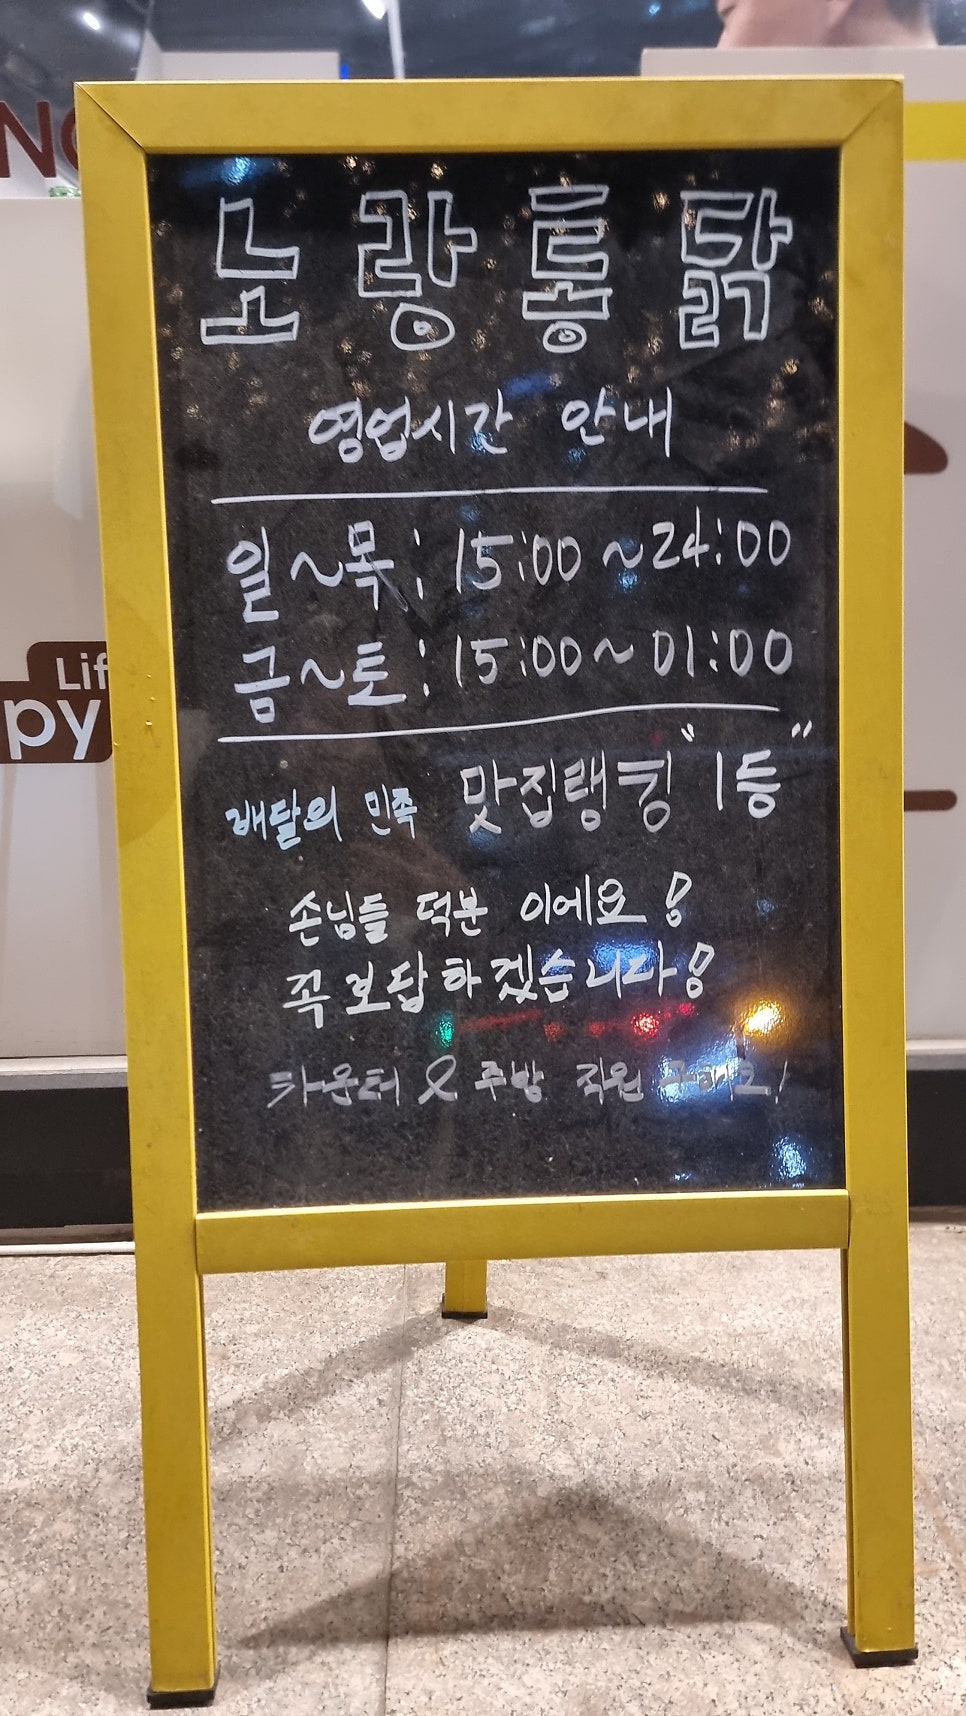 노랑통닭
영업시간 안내
일~목: 15:00 ~ 24:00
금~토: 15:00 ~ 01:00
배달의 민족 맛집랭킹 "1등"
손님들 덕분 이에요!
꼭 보답하겠습니다!
카운터 & 주방 직원 구해요!
Lif
py